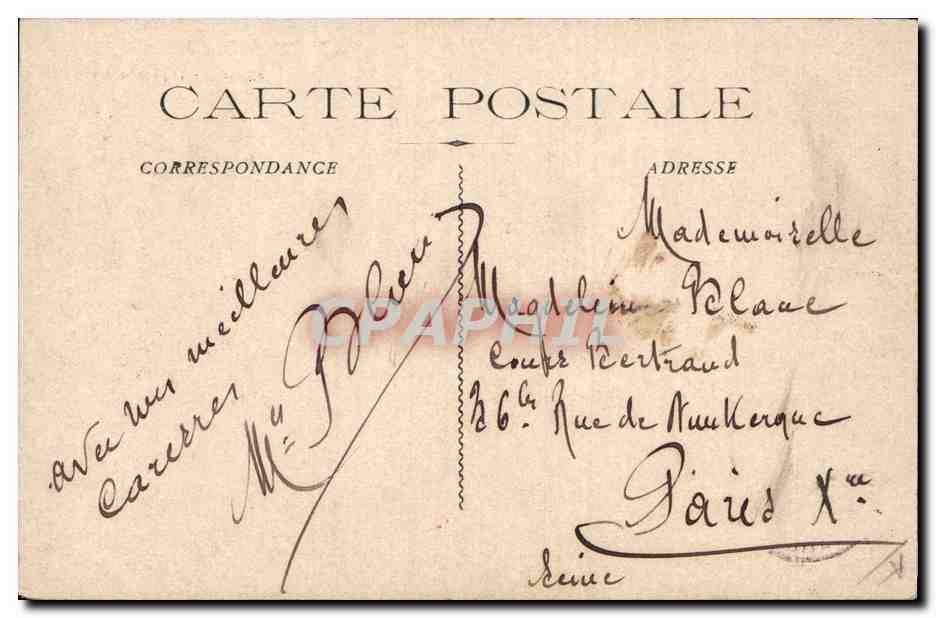 CARTE POSTALE
CORRESPONDANCE
ADRESSE
avec mes meilleures
Caresses
Mademoiselle
Magdeleine Blanc
Cours Bertrand
Rue de Dunkerque
Paris X
Seine
CPAPHIL